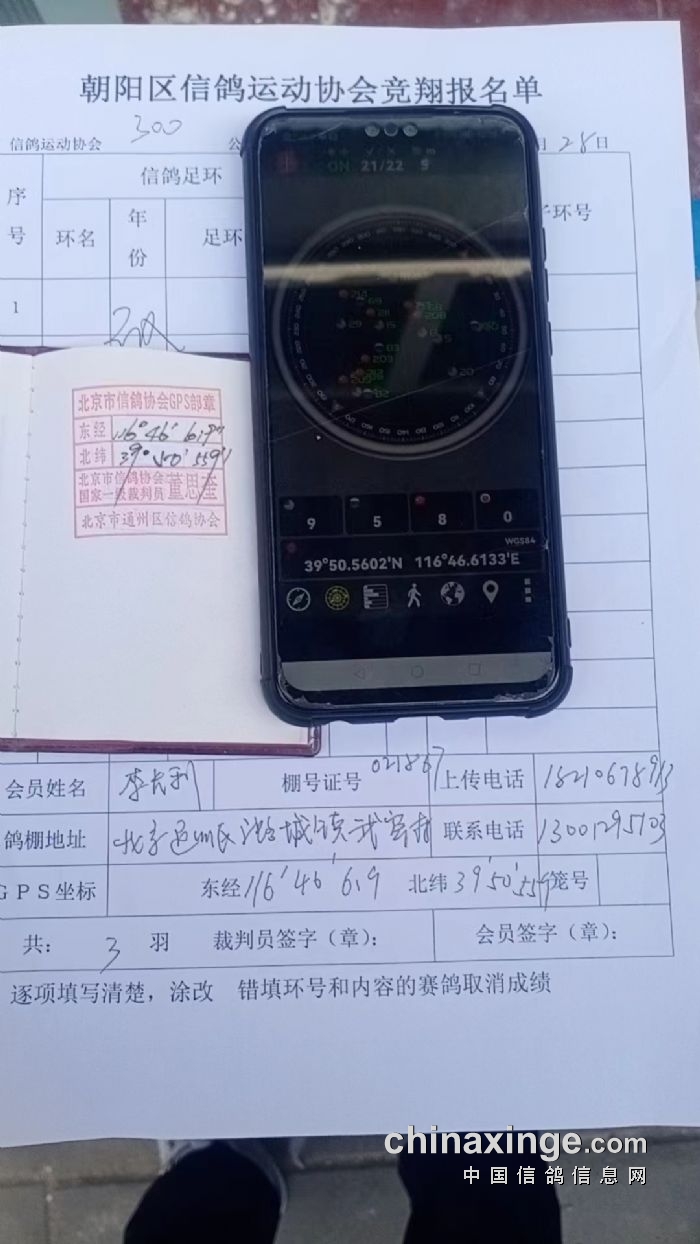 朝阳区信鸽运动协会竞翔报名单
信鸽运动协会 300 公 月 28 日
序号 信鸽足环 环号
环名 年份 足环
1
ON 21/22 9
北京市信鸽协会GPS部章
东经 116° 46′
北纬 39° 50′ 559
北京市信鸽协会
国家一级裁判员 董思奎
北京市通州区信鸽协会
9 5 8 0
WGS84
39°50.5602'N 116°46.6133'E
会员姓名 李长利 棚号证号 021867 上传电话
鸽棚地址 北京通州区潞城镇武窑村 联系电话 13001295103
GPS坐标 东经 116′46′619 北纬 39′50′559 笼号
共: 3 羽 裁判员签字（章）: 会员签字（章）:
逐项填写清楚，涂改 错填环号和内容的赛鸽取消成绩
chinaxinge.com
中国信鸽信息网